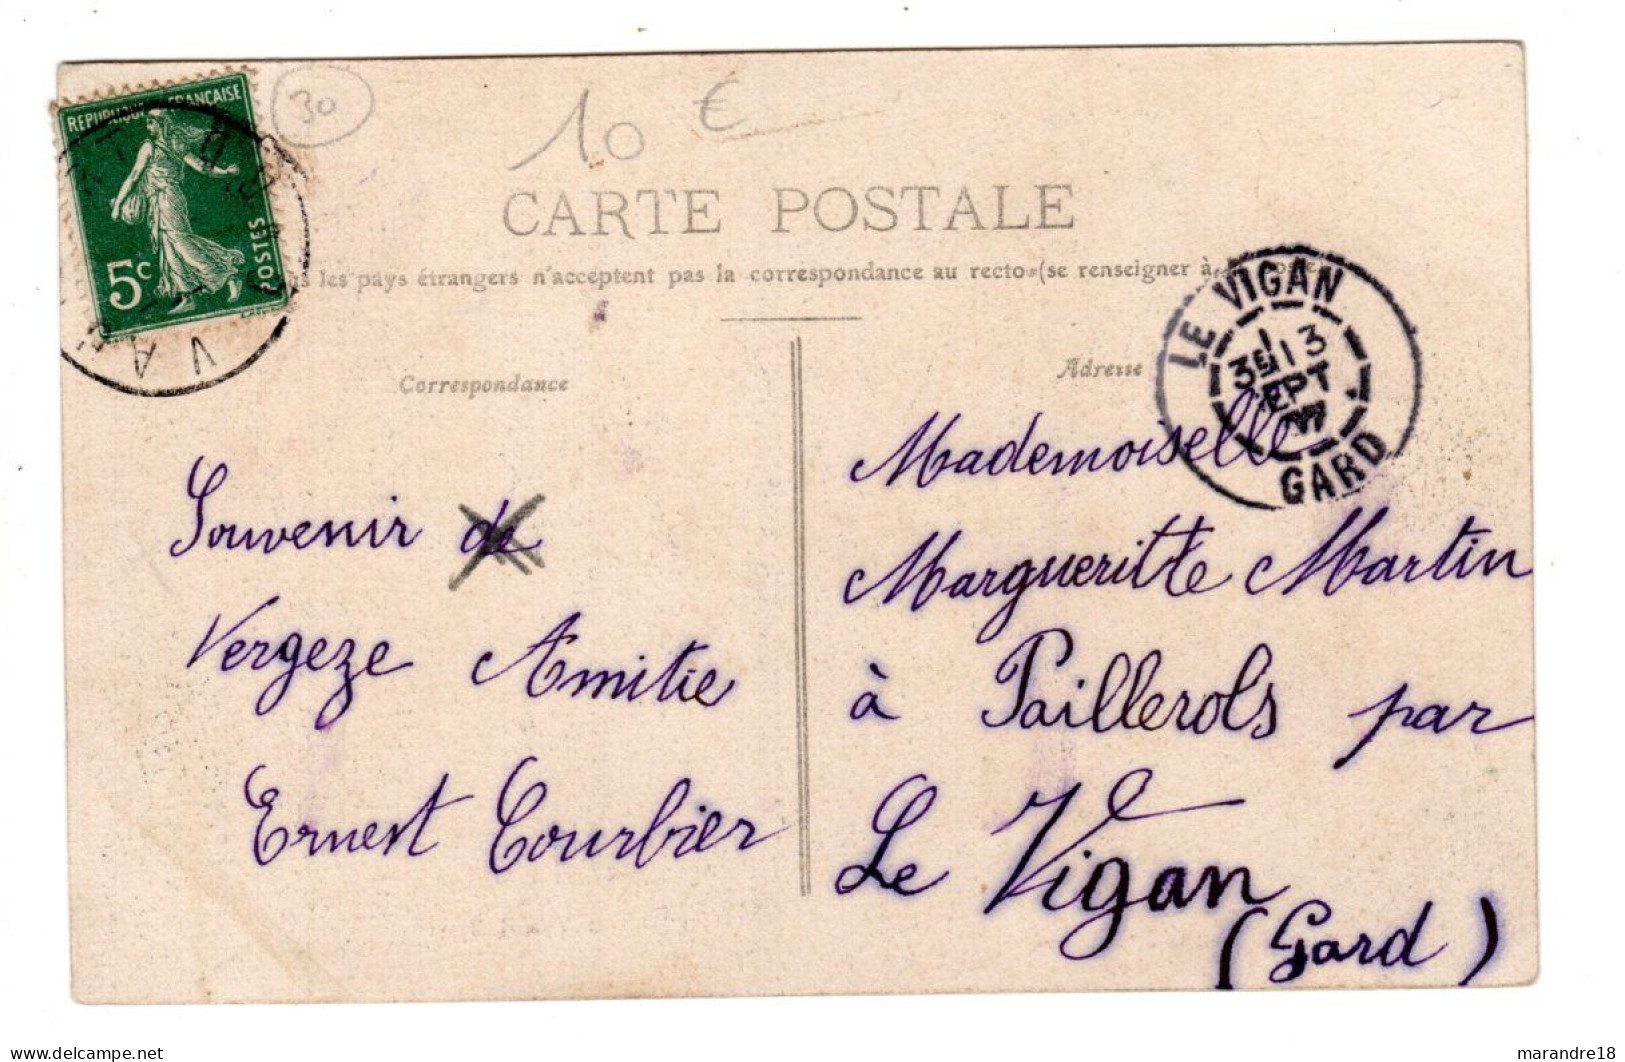 RÉPUBLIQUE FRANÇAISE
5c POSTES
30
10 €
CARTE POSTALE
les pays étrangers n'acceptent pas la correspondance au recto (se renseigner à
LE VIGAN
3E 13
SEPT
07
GARD
Correspondance
Adresse
Souvenir de
Vergeze Amitie
Ernest Courbier
Mademoiselle
Margueritte Martin
à Paillerols par
Le Vigan
(Gard)
delcampe.net
marandre18